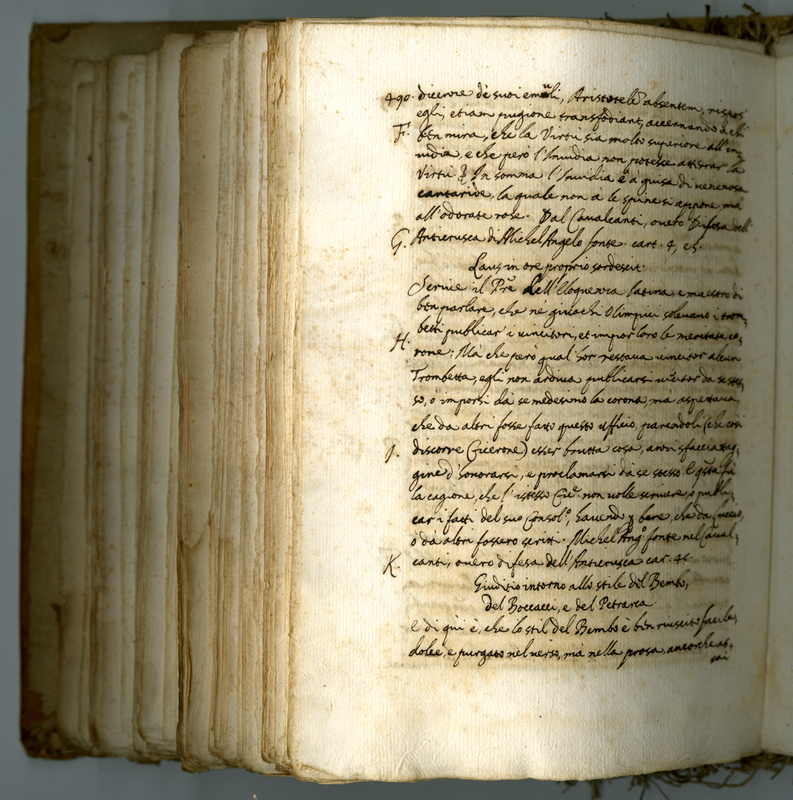 490. dicevie de suoi emuli, Aristotele absentem, rispos
egli, etiam pugione transfodiant, accennando à chi
F. ben mira, che la Virtù sia molto superiore all'in
uidia, e che però l'Inuidia non potesse atterrar la
Virtù In somma l'Inuidia è à guisa di uenenosa
cantaride, la quale non à le spine si appone, mà
all'odorate rose. Dal Caualcanti, ouero Difesa dell'
G. Anticrusca di Michel Angelo fonte. cart. 4, e 5.
Laus in ore proprio sordescit.
Scriue il Pre dell'Eloquenza latina, e maestro di
ben parlare, che ne giuochi Olimpici soleuano i trom,
betti publicar' i uincitori, et impor loro le meritate co,
H. rone; Mà che però qual'hor restaua uincitor alcun
Trombetta, egli non ardiua publicarsi uincitor da se stes,
so, ò imporsi da se medesimo la corona, ma aspettaua,
che da altri fosse fatto questo ufficio, parendoli (che così
I. discorre Cicerone) esser brutta cosa, anzi sfacciatag,
gine d'honorarsi, e proclamarsi da se stesso. E qsta fù
la cagione, che l'istesso Cic. non uolle scriuere, ò publi,
car i fatti del suo Consolo, hauendo p bene, che da
ò da altri fossero scritti. Michel Ango fonte nel Caual,
K. canti, ouero difesa dell'Anticrusca car. 46.
Giuditio intorno allo stile del Bembo,
del Boccacci, e del Petrarca.
E di quì è, che lo stil del Bembo è ben riuscito facile,
dolce, e purgato nel uerso, mà nella prosa, ancorche as,
sai